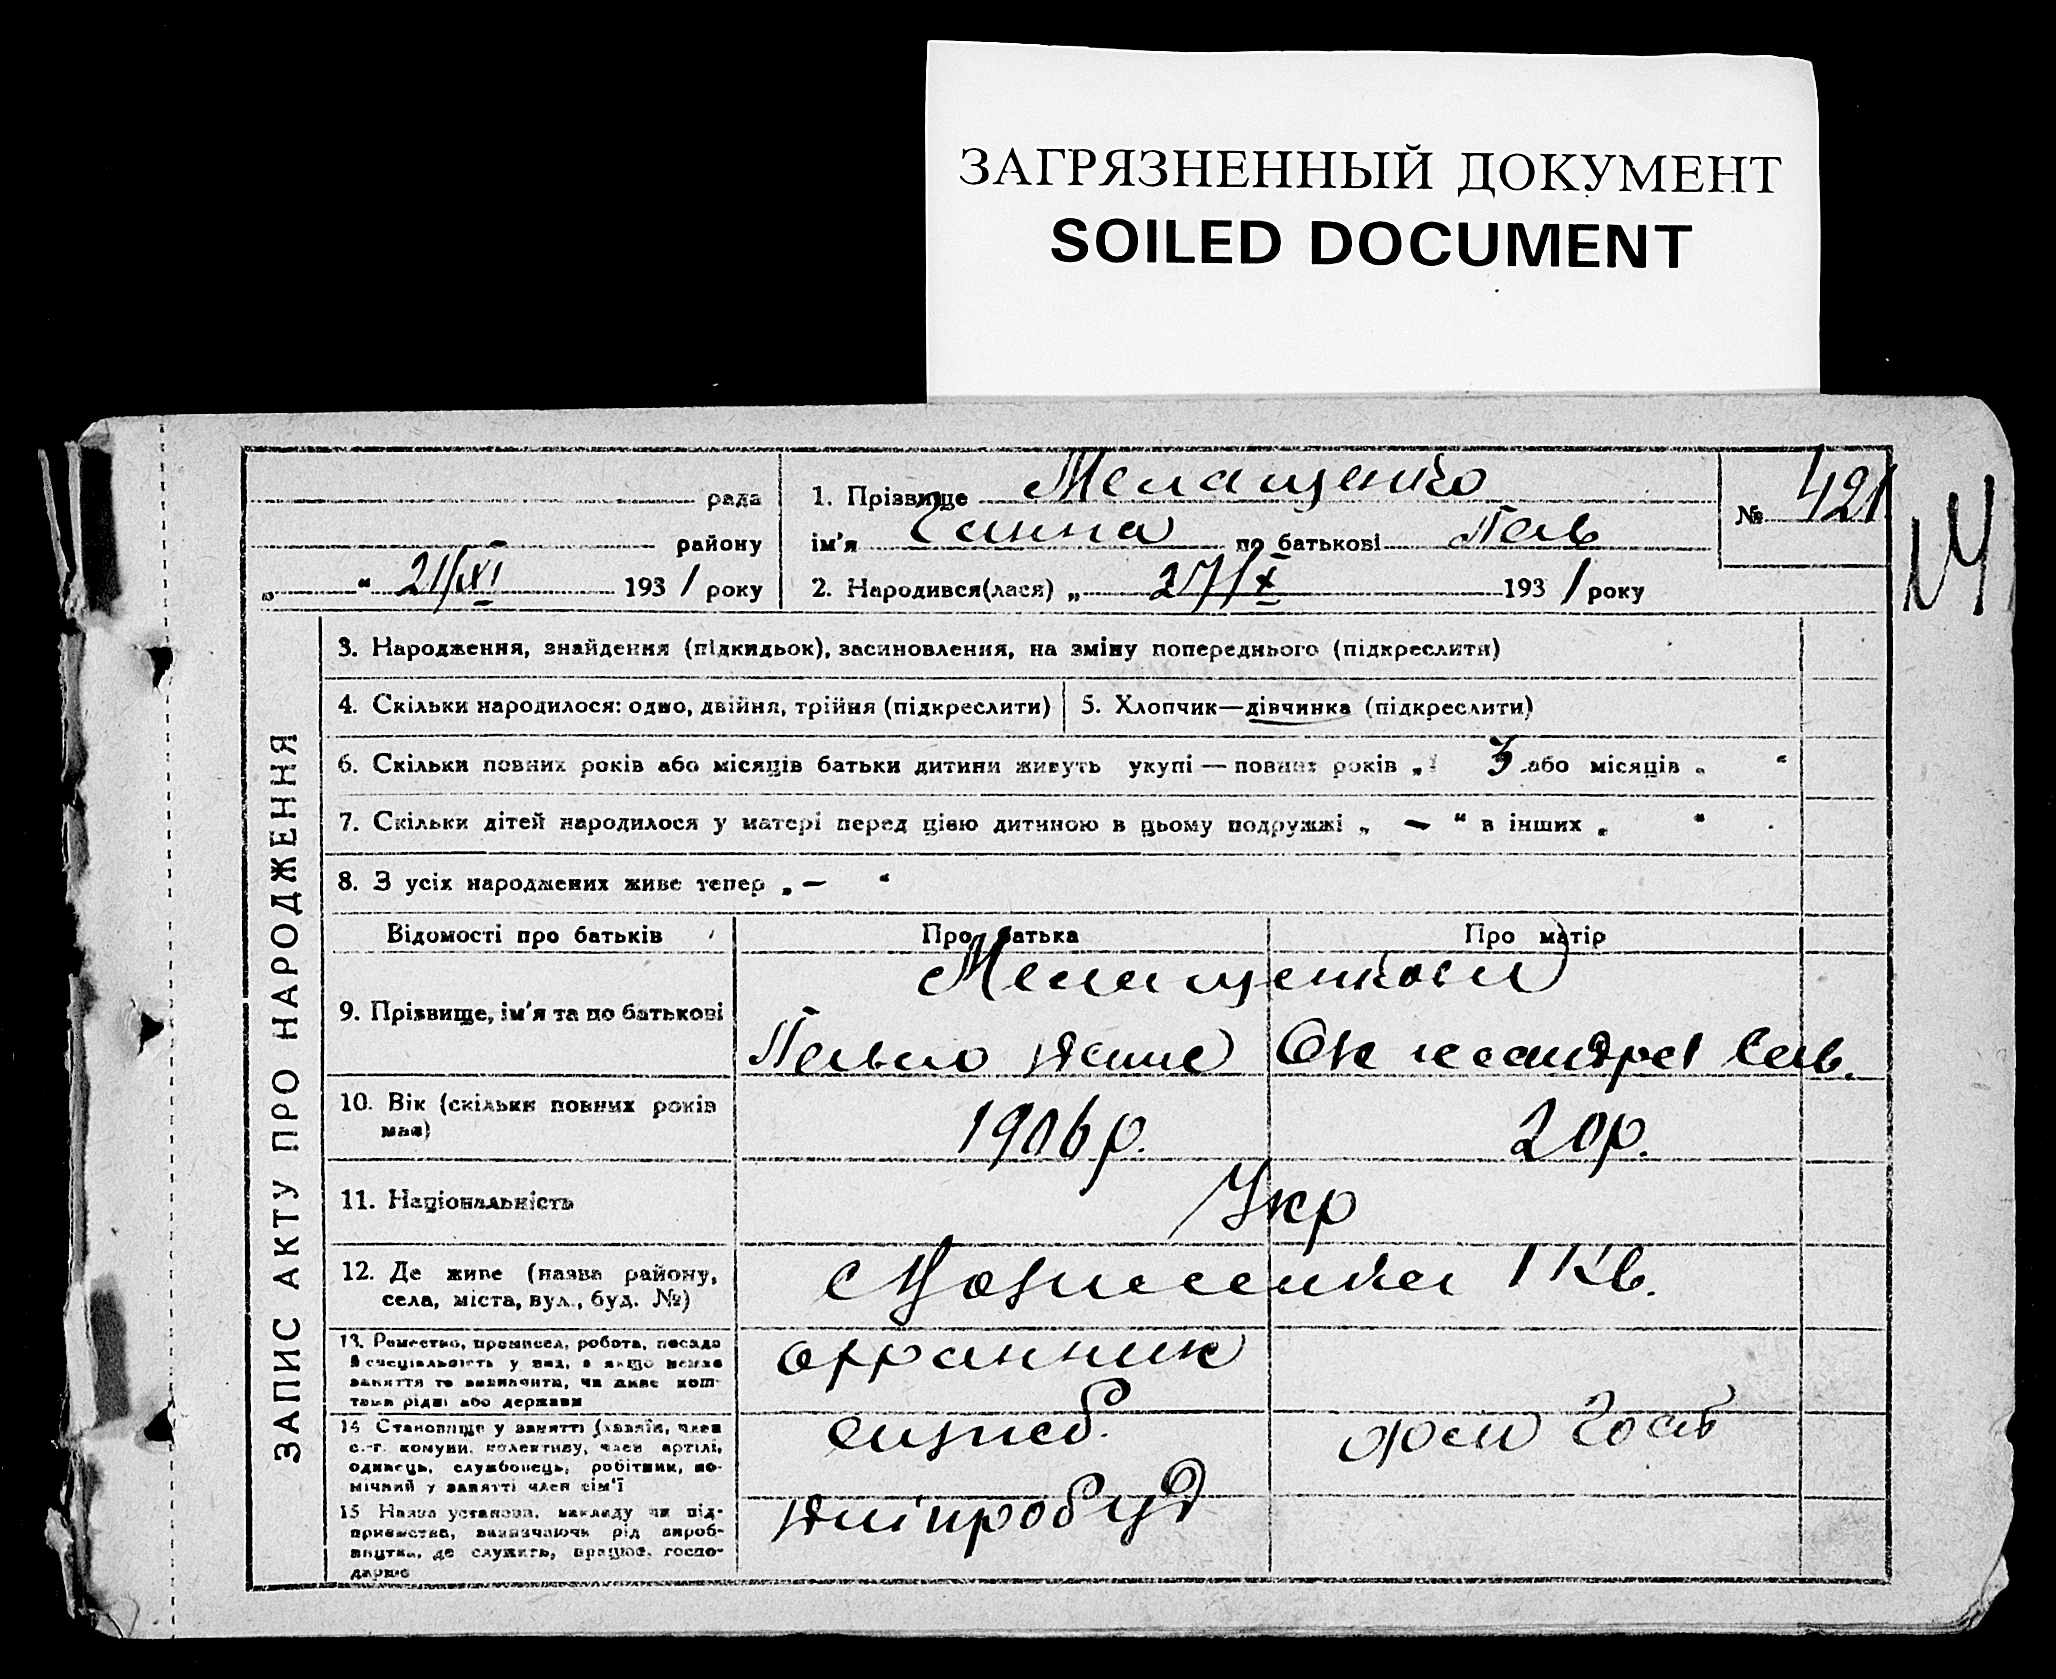 ЗАГРЯЗНЕННЫЙ ДОКУМЕНТ
SOILED DOCUMENT
рада
району
„ “ 21/XI 1931 року
1. Прізвище Мелащенко
ім'я Ганна по батькові Пав
2. Народився(лася) „ 27/X 1931 року
№ 421
ЗАПИС АКТУ ПРО НАРОДЖЕННЯ
3. Народження, знайдення (підкидьок), засиновлення, на зміну попереднього (підкреслити)
4. Скільки народилося: одно, двійня, трійня (підкреслити)
5. Хлопчик—дівчинка (підкреслити)
6. Скільки повних років або місяців батьки дитини живуть укупі — повних років „ 3 або місяців „ “
7. Скільки дітей народилося у матері перед цією дитиною в цьому подружжі „ — “ в інших „ “
8. З усіх народжених живе тепер „ — “
Відомості про батьків
Про батька
Про матір
9. Прізвище, ім'я та по батькові
Мелащенкови
Павло
Олександра Сав.
10. Вік (скільки повних років має)
1906 р.
20 р.
11. Національність
Укр
12. Де живе (назва району,
села, міста, вул., буд. №)
1 Кв.
13. Ремество, промисел, робота, посада
й спеціальність у них, а якщо немає
заняття то визначити, чи живе кош-
тами рідні або держави
охранник
14 Становище у занятті (хазяїн, член
с.-г. комуни, колективу, член артілі,
одинець, службовець, робітник, по-
мічний у занятті член сім'ї
служб.
дом госп
15 Назва установи, закладу чи під-
приємства, визначаючи рід вироб-
ництва, де служить, працює, госпо-
дарює
Дніпробуд